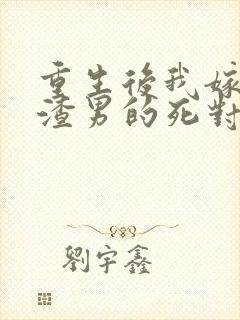 重生後我嫁
渣男的死對
劉宇鑫